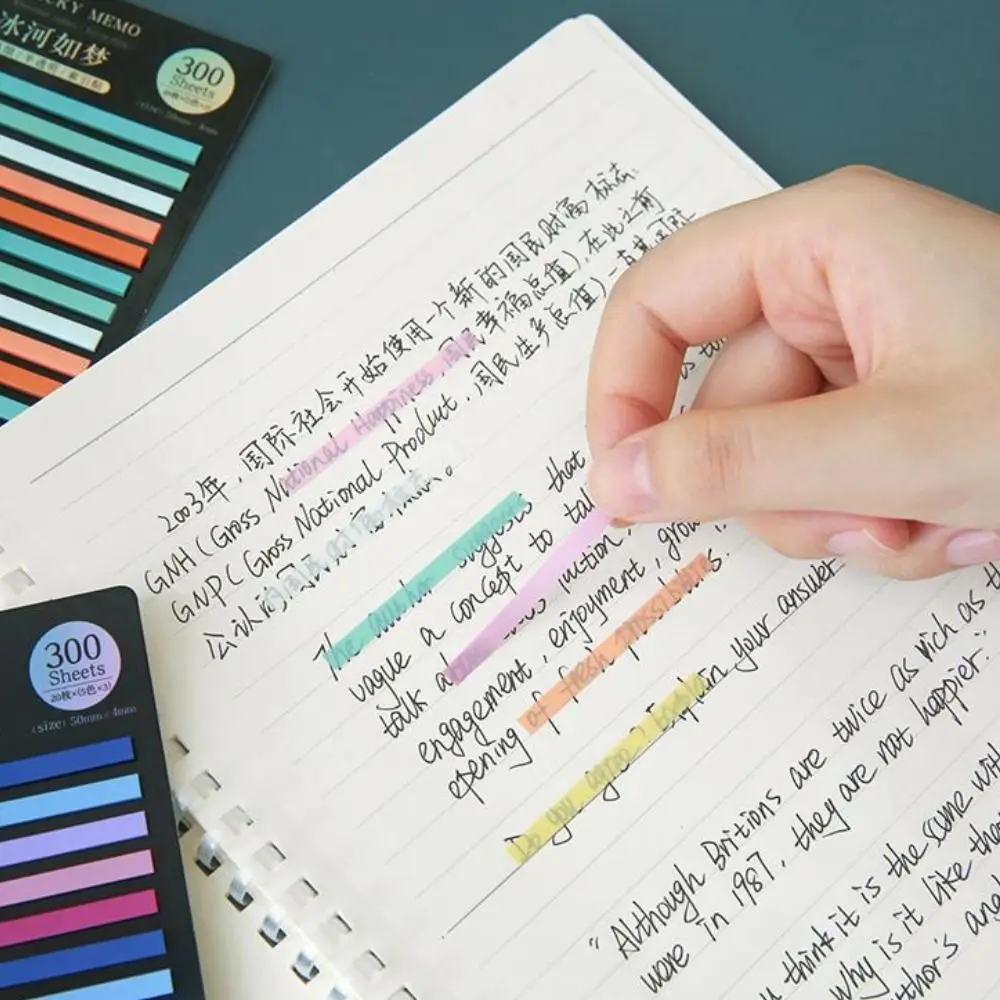 KY MEMO
冰河如梦
300
Sheets
300
Sheets
20枚×(5色×3)
(size): 50mm×4mm
2003年，国际社会开始使用一个新的国民财富标志.
GNH (Gross National Happiness,国民幸福总值),在此之前
GNP (Gross National Product, 国民生产总值)一直是国际
公认的国民财富标志。
The author suggests that
vague a concept to tal
talk about
engagement, enjoyment, grow
opening of fresh possibilities.
Do you agree? Explain your answer
"Although Britions are twice as rich as th
ware in 1987, they are not happier."
think it is the same with
Why is it like the
thor's ang